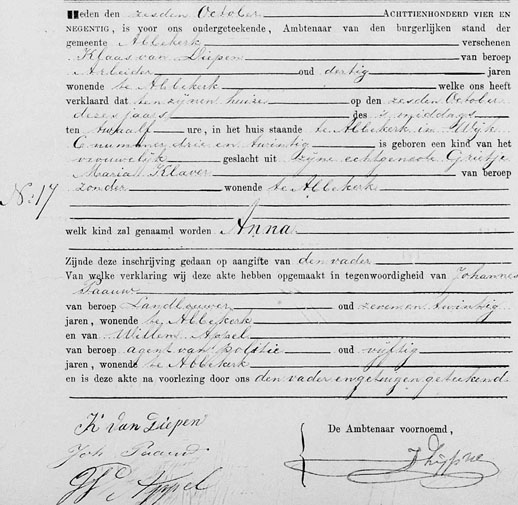 Heden den zesden October ACHTTIENHONDERD VIER EN
NEGENTIG, is voor ons ondergeteekende, Ambtenaar van den burgerlijken stand der
gemeente Abbekerk verschenen
Klaas van Diepen van beroep
Arbeider oud dertig jaren
wonende te Abbekerk welke ons heeft
verklaard dat ten zijnen huize op den zesden October
dezes jaars des middags
ten twaalf ure, in het huis staande te Abbekerk in Wijk
C nummer drie en twintig is geboren een kind van het
vrouwelijk geslacht uit zijne echtgenoote Grietje
Maria Klaver van beroep
zonder wonende te Abbekerk
No 17
welk kind zal genaamd worden Anna
Zijnde deze inschrijving gedaan op aangifte van den vader
Van welke verklaring wij deze akte hebben opgemaakt in tegenwoordigheid van Johannes
Paauw
van beroep Landbouwer oud zeven en twintig
jaren, wonende te Abbekerk
en van Willem Appel
van beroep agent van politie oud vijftig
jaren, wonende te Abbekerk
en is deze akte na voorlezing door ons den vader en getuigen geteekend
K van Diepen
Joh Paauw
W Appel
De Ambtenaar voornoemd,